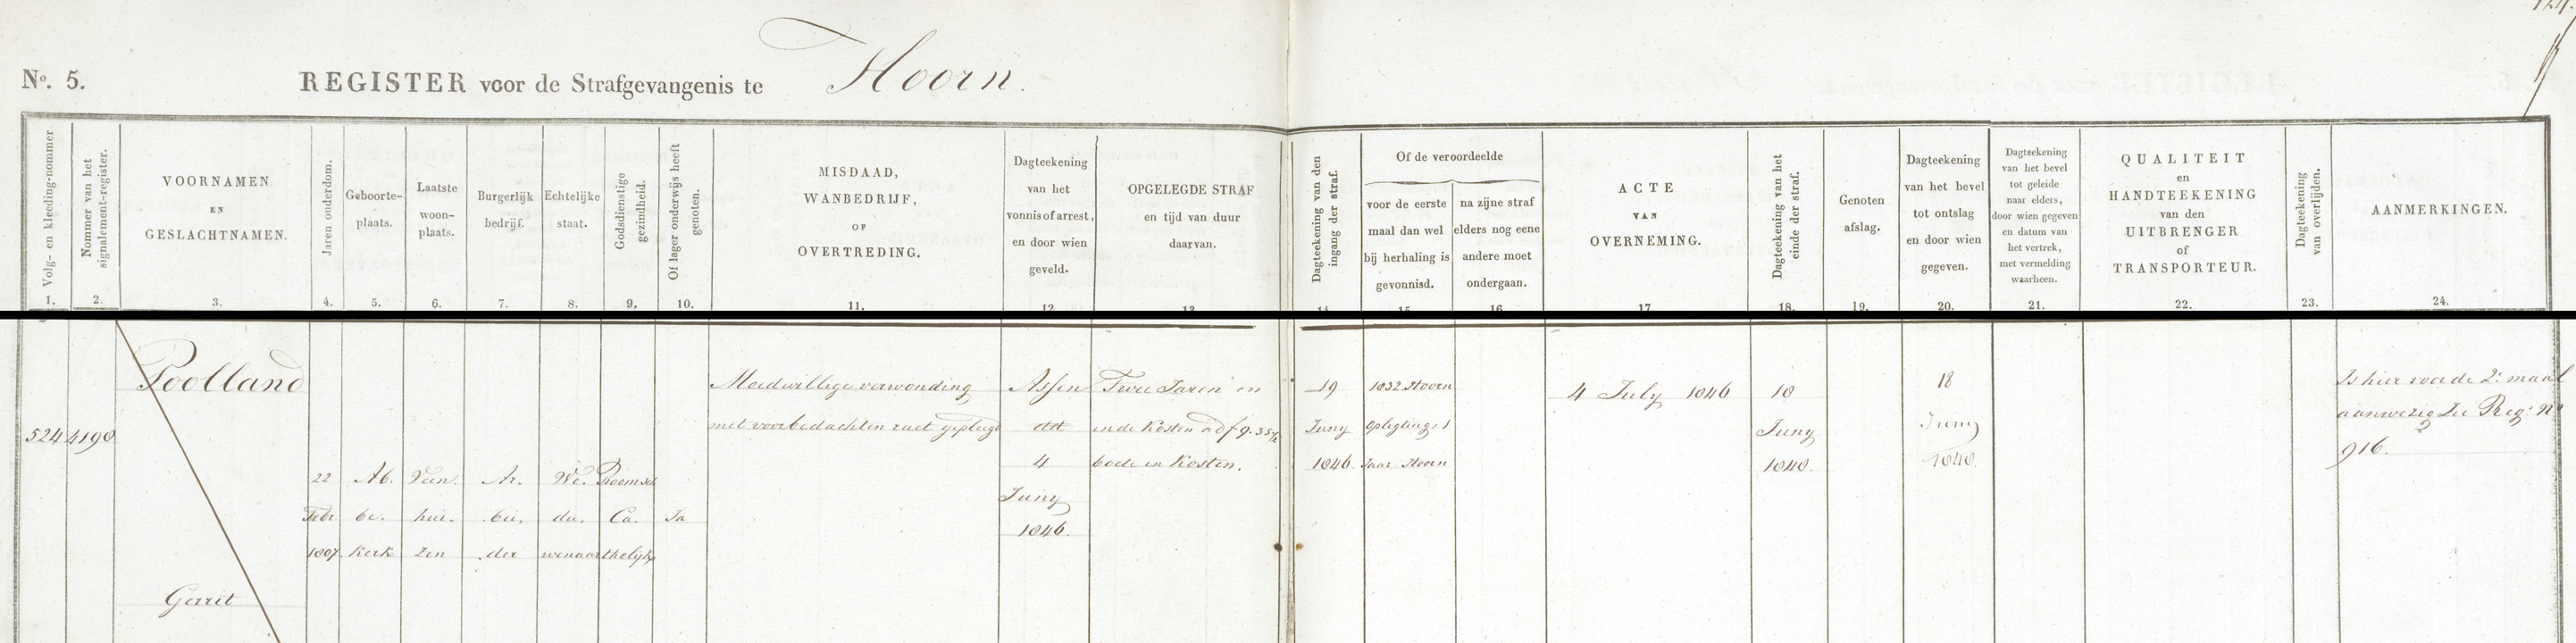 124.
No. 5.
REGISTER voor de Strafgevangenis te Hoorn.
Volg- en kleeding-nommer
1.
Nommer van het
signalement-register.
2.
VOORNAMEN
EN
GESLACHTNAMEN.
3.
Jaren ouderdom.
4.
Geboorte-
plaats.
5.
Laatste
woon-
plaats.
6.
Burgerlijk
bedrijf.
7.
Echtelijke
staat.
8.
Godsdienstige
gezindheid.
9.
Of lager onderwijs heeft
genoten.
10.
MISDAAD,
WANBEDRIJF,
OF
OVERTREDING.
11.
Dagteekening
van het
vonnis of arrest,
en door wien
geveld.
12
OPGELEGDE STRAF
en tijd van duur
daarvan.
13
Dagteekening van den
ingang der straf.
14
Of de veroordeelde
voor de eerste
maal dan wel
bij herhaling is
gevonnisd.
15
na zijne straf
elders nog eene
andere moet
ondergaan.
16
ACTE
VAN
OVERNEMING.
17
Dagteekening van het
einde der straf.
18.
Genoten
afslag.
19.
Dagteekening
van het bevel
tot ontslag
en door wien
gegeven.
20.
Dagteekening
van het bevel
tot geleide
naar elders,
door wien gegeven
en datum van
het vertrek,
met vermelding
waarheen.
21.
QUALITEIT
en
HANDTEEKENING
van den
UITBRENGER
of
TRANSPORTEUR.
22.
Dagteekening
van overlijden.
23.
AANMERKINGEN.
24.
524
4190
Poolland
Gerrit
22
Febr
1807
Ab.
be.
kerk
Veen.
hui.
zen
Ar.
bei.
der
We.
du.
wenaar
Roomsch
Ca.
tholyk
Ja
Moedwillige verwonding
met voorbedachten raet gepleegd
Assen
dd
4
Juny
1846.
Twee Jaren en
in de Kosten ad f 9.35½
boete en Kosten.
19
Juny
1846.
1832 Hoorn
1
Jaar Hoorn
4 July 1846
18
Juny
1848.
18
Juny
1848.
Is hier voor de 2e maal
aanwezig Zie Regr No
916.